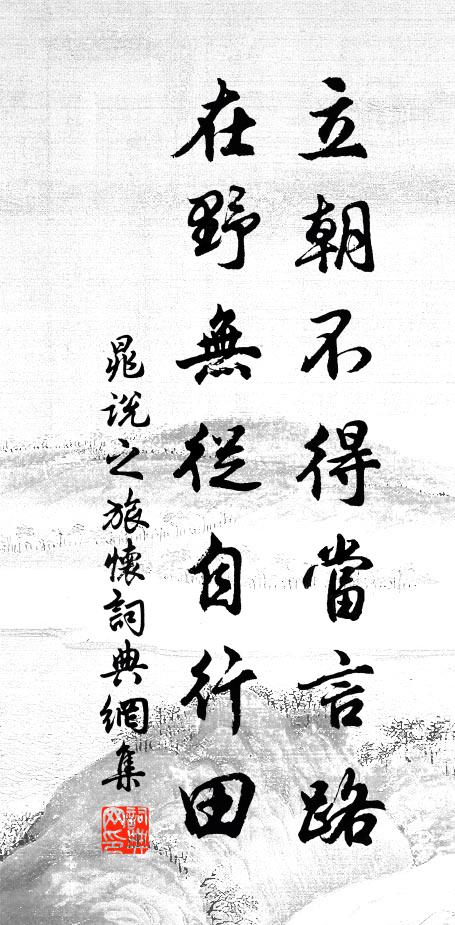 立朝不得當言路
在野無從自行田
晁說之旅懷詞典網集